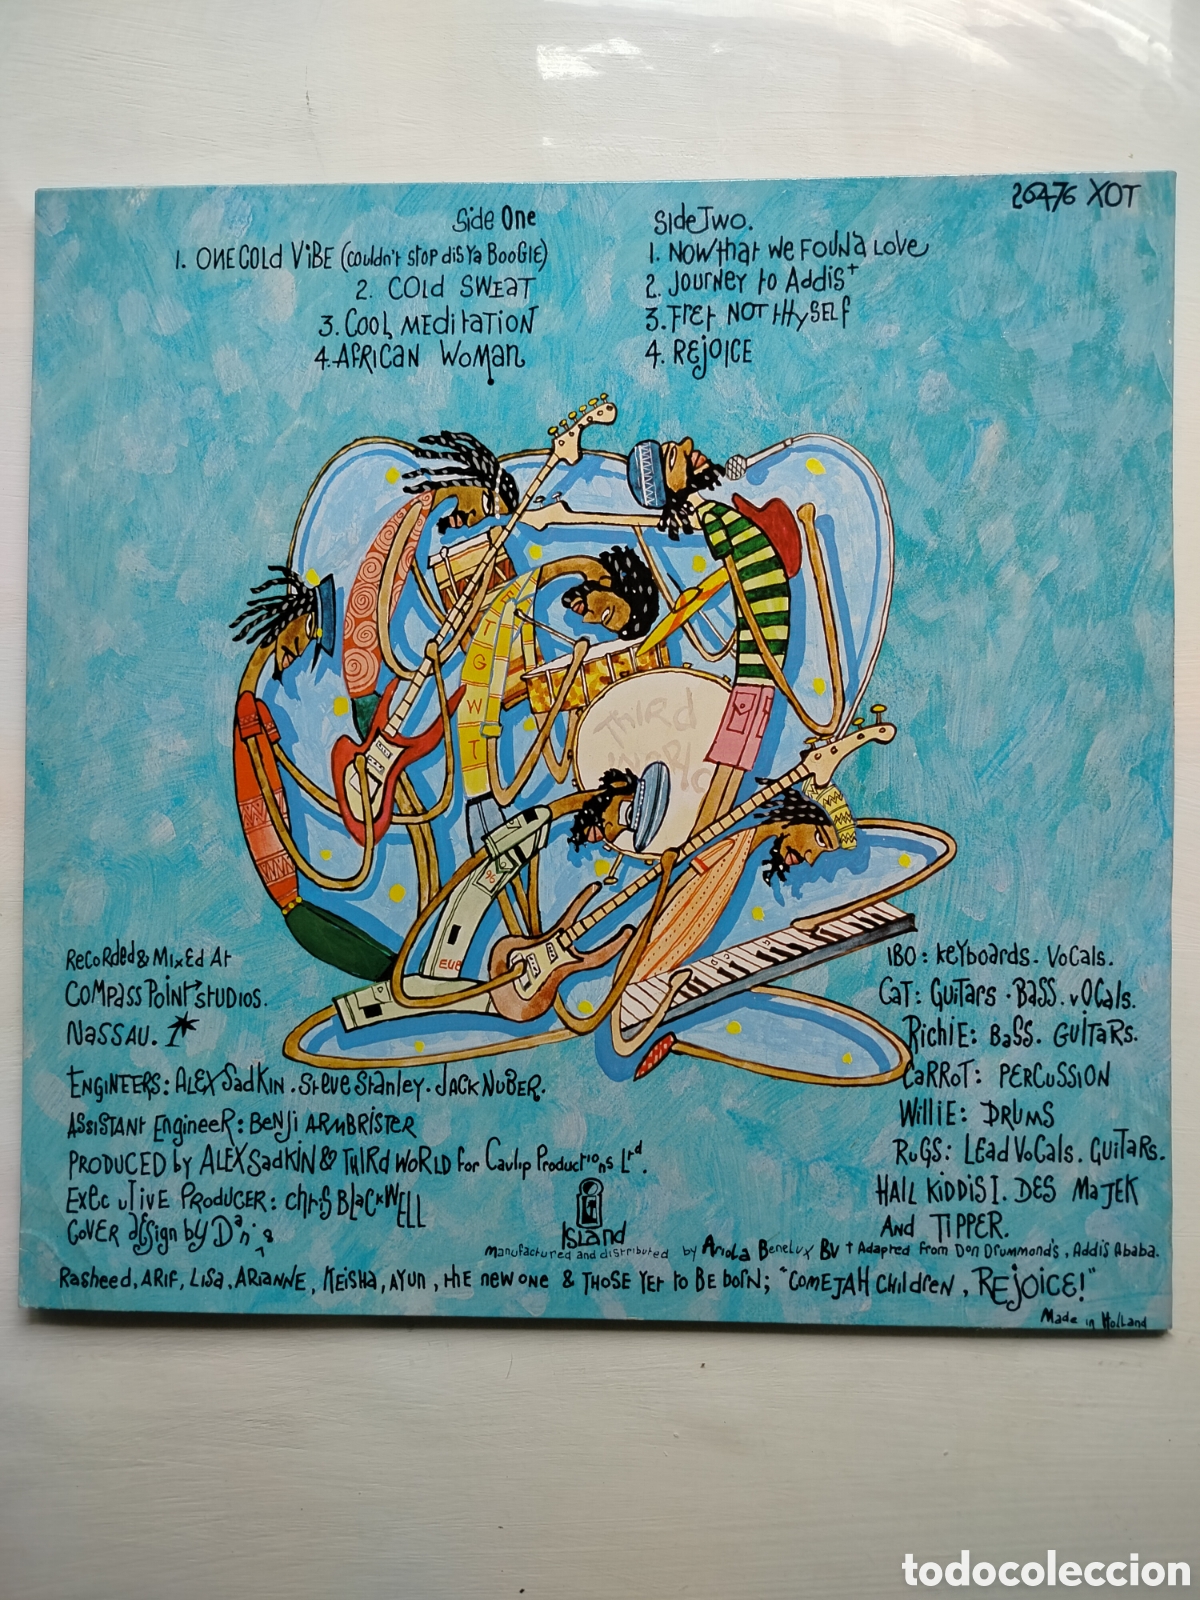 26476 XOT
Side One
1. ONE COLD VIBE (Couldn't stop dis Ya Boogie)
2. COLD SWEAT
3. COOL MEDITATION
4. AFRICAN WOMAN
Side Two.
1. NOW that WE FOUND LOVE
2. Journey to Addis+
3. Fret NOT thySELF
4. REJOICE
E
T
G
W
T
Third
World
96
EUB
Recorded & Mixed At
COMPASS POINT STUDIOS.
NASSAU.
ENGINEERS: ALEX SadKIN. Steve Stanley. JACK NUBER.
ASSISTANT Engineer: BENJI ARMBRISTER
PRODUCED by ALEX SadKIN & THIRD WORLD for Caulip Productions Ltd.
Executive PRODUCER: Chris BLACKWELL
COVER design by Dani &
IBO: Keyboards. Vocals.
CAT: Guitars. BASS. vOCals.
Richie: Bass. Guitars.
CaRRoT: PERCUSSION
WILLIE: DRUMS
RUGS: LEAD VOCALS. Guitars.
HAIL KIDDIS I. DES MAJEK
AND TIPPER.
Island
Manufactured and distributed by Ariola Benelux BV + Adapted from Don Drummond's, Addis Ababa.
Rasheed, ARIF, LISA, ARIANNE, KEISHA, AYUN, the new one & THOSE YET to BE born; "COME JAH Children, REJOICE!"
Made in Holland
todocoleccion